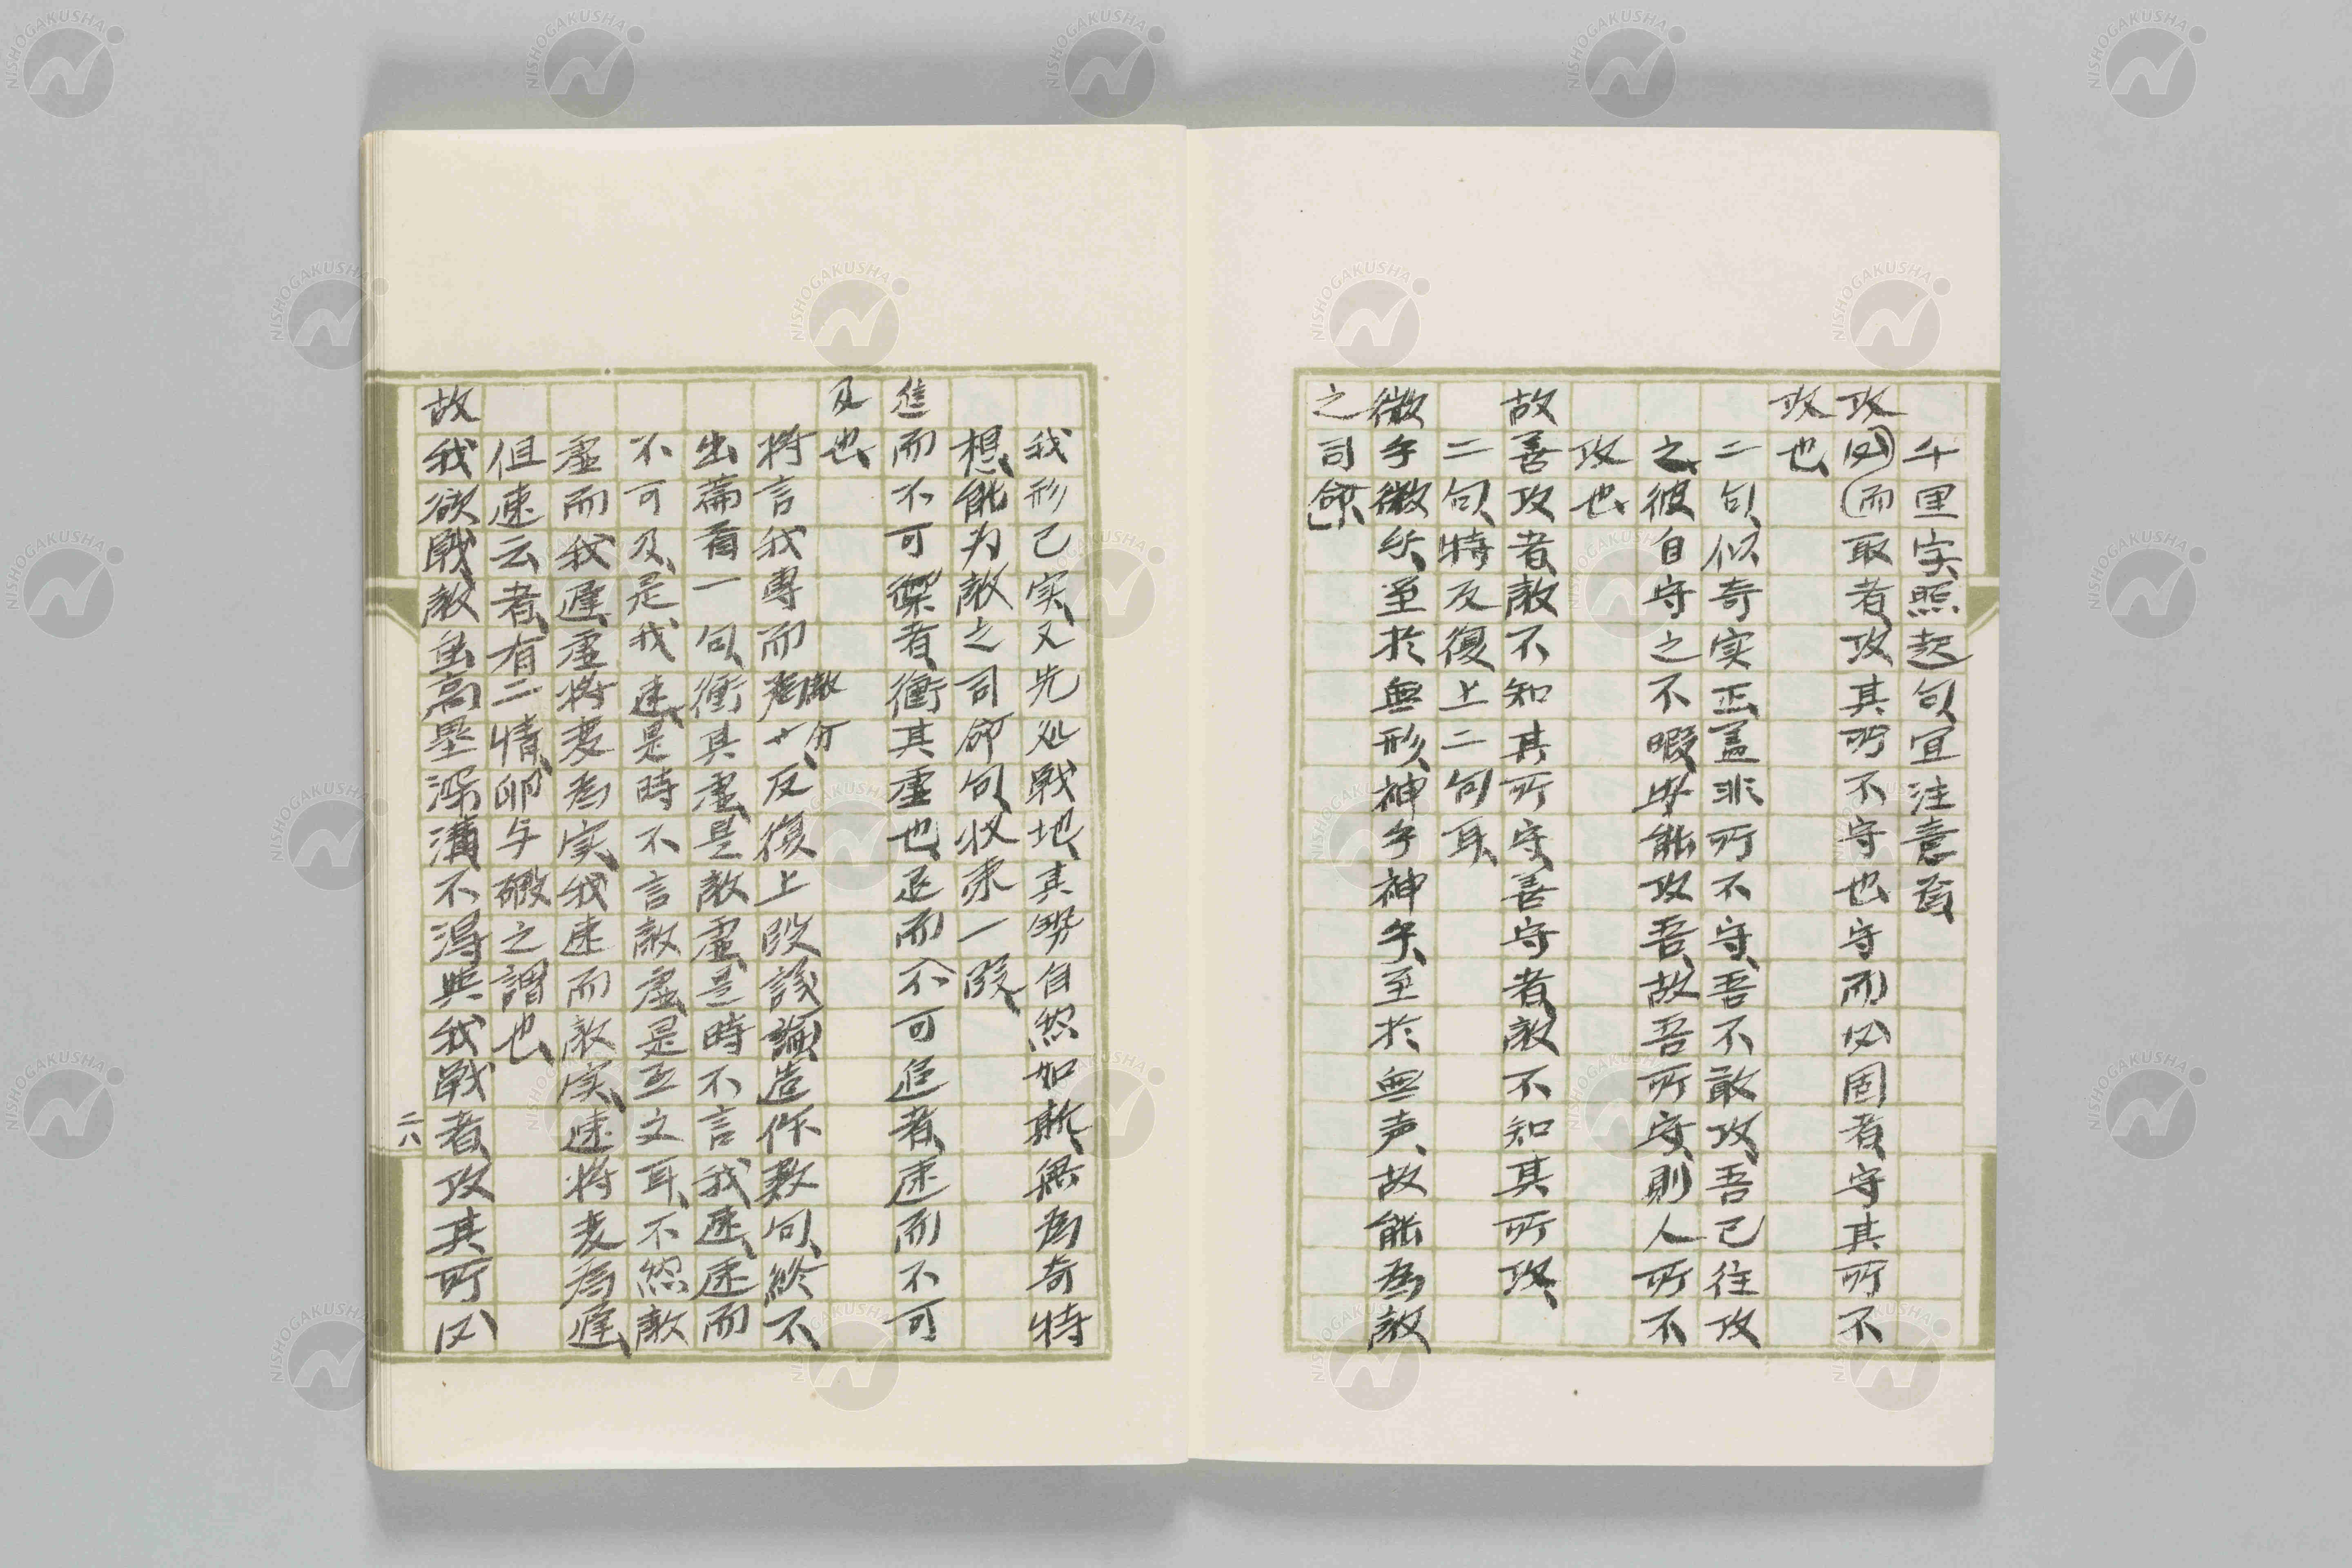 千里字照起句宜注意焉
攻必而取者攻其所不守也守而必固者守其所不
攻也
二句似奇実正蓋非所不守吾不敢攻吾已往攻
之彼自守之不暇毋能攻吾故吾所守則人所不
攻也
故善攻者敵不知其所守善守者敵不知其所攻
二句特反復上二句耳
微乎微乎至於無形神乎神乎至於無声故能為敵
之司命
我形已実又先処戦地其勢自然如斯無為奇特
想能为敵之司命句収束一段
進而不可禦者衝其虚也退而不可追者速而不可
及也
将言我専而敵分反復上段議論造作数句然不
出篇首一句衝其虚是敵虚是時不言我速速而
不可及是我速是時不言敵虚是互文耳不然敵
虚而我遅虚将変為実我速而敵実速将変為遅
但速云者有二情卵与碬之謂也
故我欲戦敵虽高塁深溝不得與我戦者攻其所必
二六
NISHOGAKUSHA